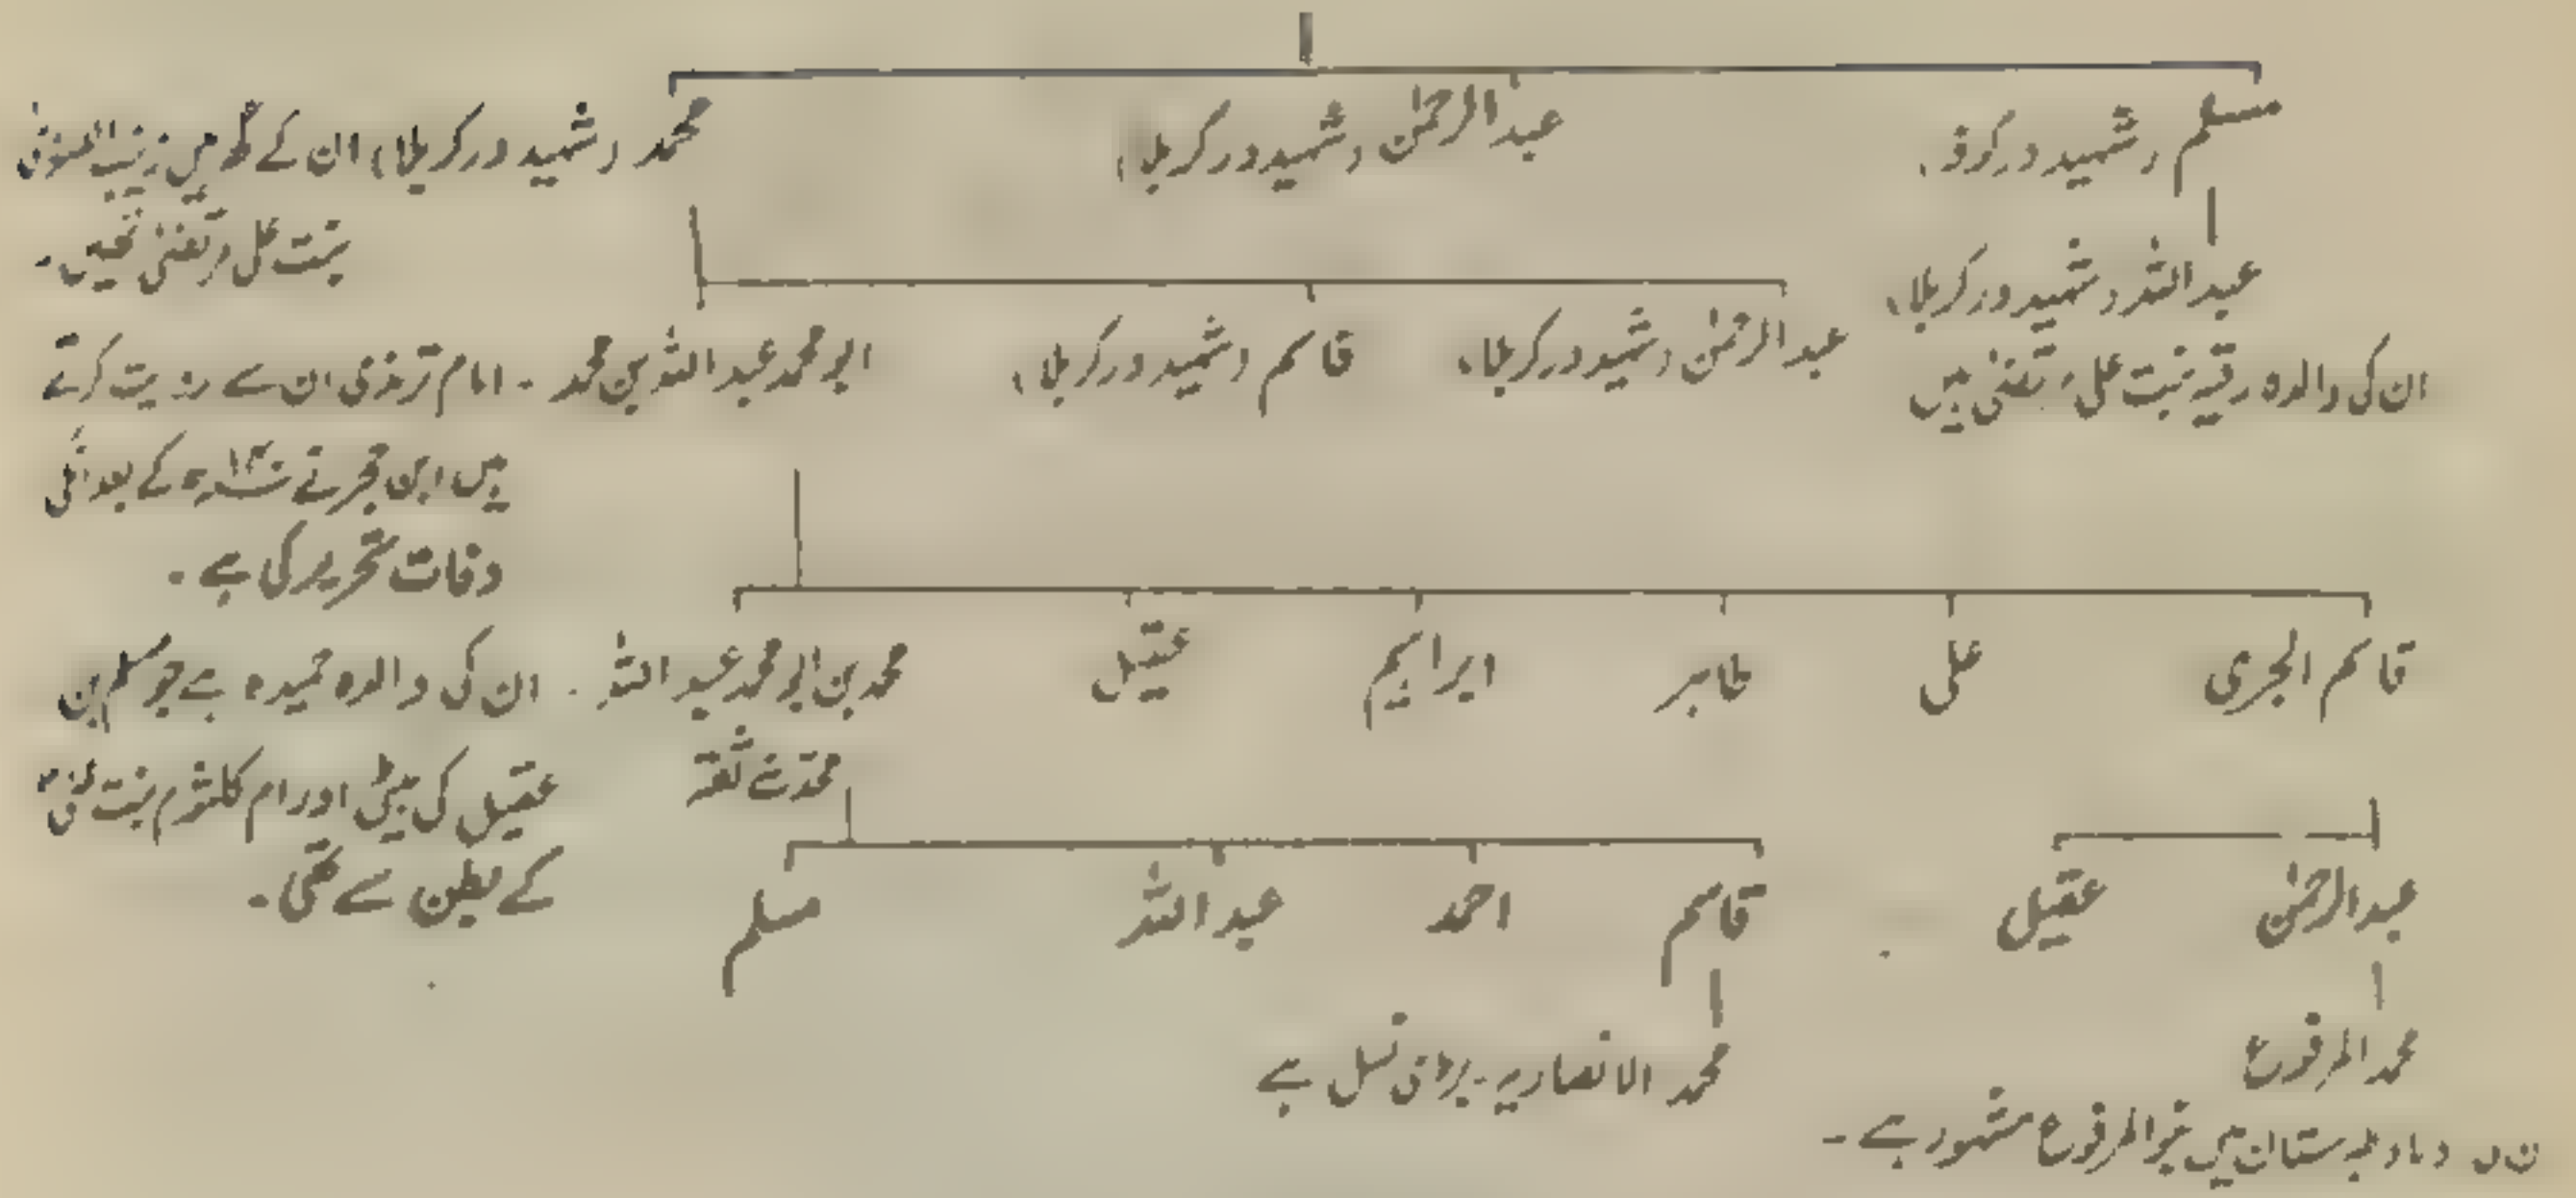 مسلم (شہید در کوفہ)
عبدالرحمٰن (شہید در کربلا)
محمد (شہید در کربلا) ان کے گھر میں زینب الصغریٰ
بنت علی مرتضیٰ تھیں۔
عبداللہ (شہید در کربلا)
ان کی والدہ رقیہ بنت علی مرتضیٰ ہیں
عبدالرحمٰن (شہید در کربلا)
قاسم (شہید در کربلا)
ابو محمد عبداللہ بن محمد - امام ترمذی ان سے روایت کرتے
ہیں ابن حجر نے ۱۴۰ھ کے بعد انکی
وفات تحریر کی ہے۔
قاسم الجزی
علی
طاہر
ابراہیم
عقیل
محمد بن ابو محمد عبداللہ - ان کی والدہ حمیدہ ہے جو مسلم بن
محدث ثقہ
عقیل کی بیٹی اور ام کلثوم بنت علی
کے بطن سے تھی۔
عبدالرحمٰن
عقیل
قاسم
احمد
عبداللہ
مسلم
محمد المرفوع
محمد الانصاریہ - بڑی نسل ہے
طبرستان میں بنو المرفوع مشہور ہے۔